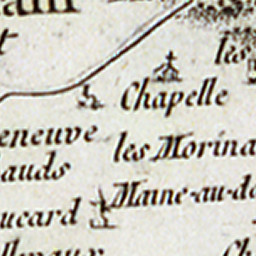 les
Chapelle
eneuve
les Morina
auds
Maine-au-d
ucard
Ch